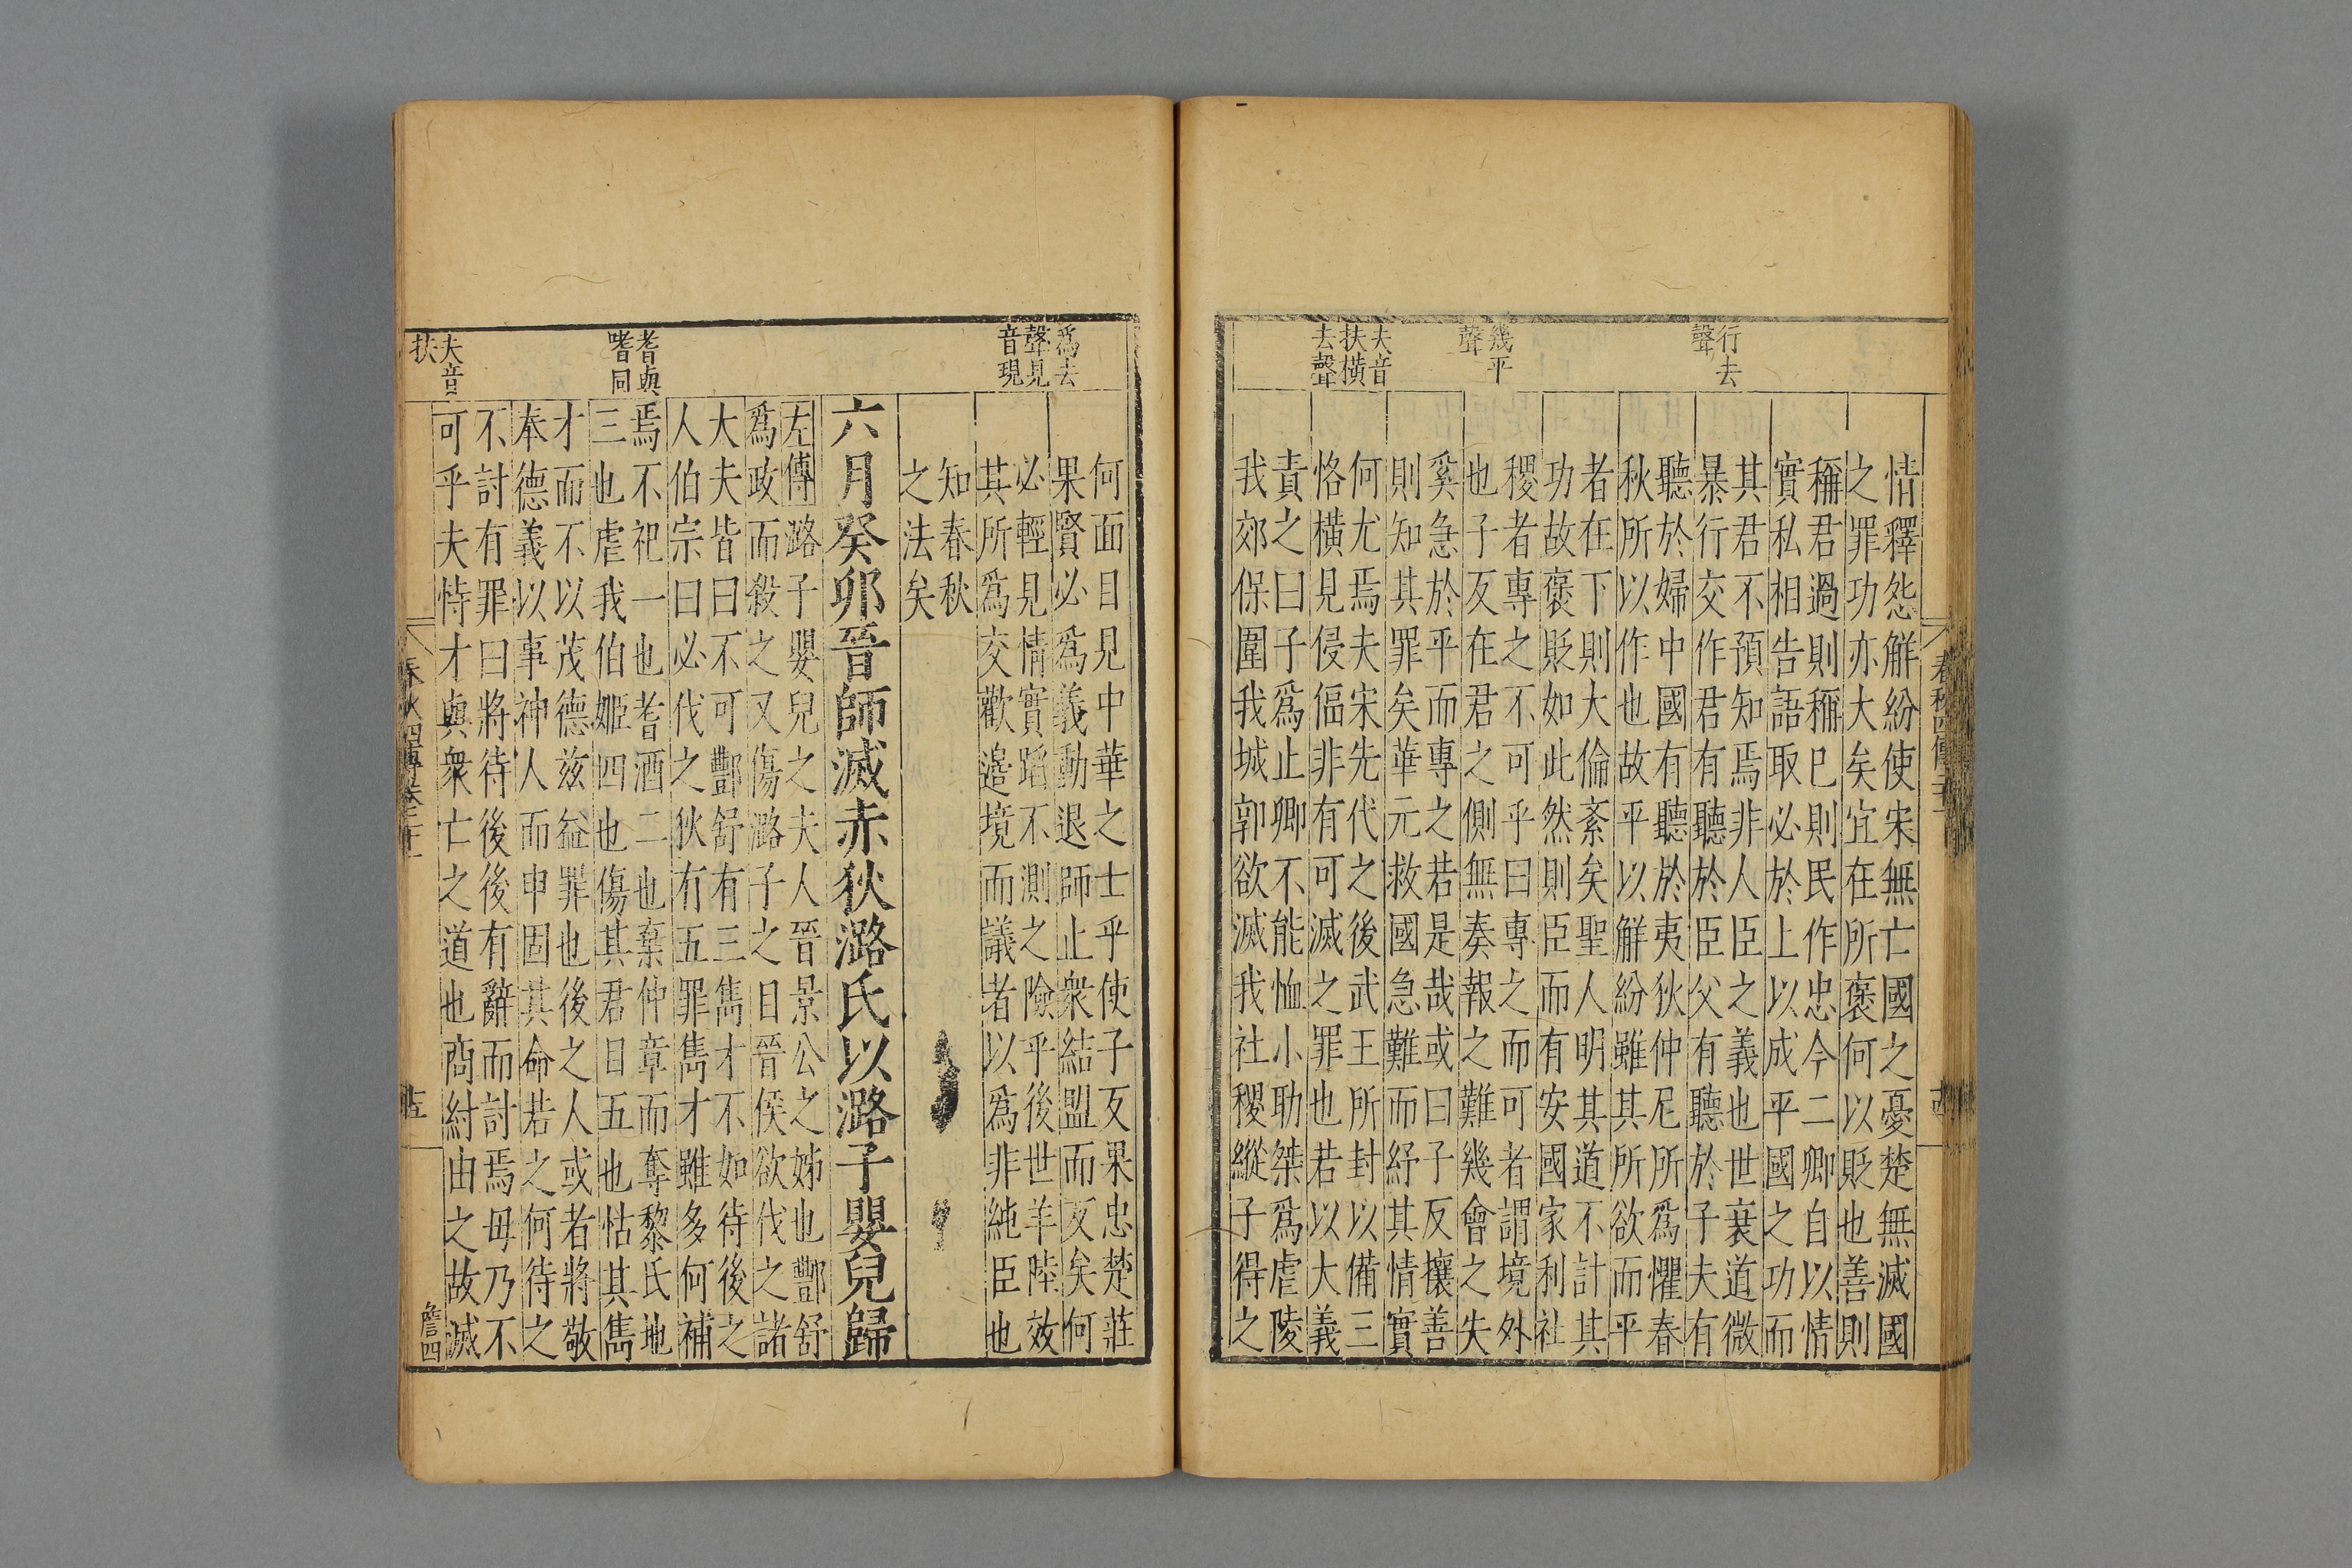 行去
聲
幾平
聲
夫音
扶橫
去聲
情釋怨解紛使宋無亡國之憂楚無滅國
之罪功亦大矣宜在所褒何以貶也善則
稱君過則稱已則民作忠今二卿自以情
實私相告語取必於上以成平國之功而
其君不預知焉非人臣之義也世衰道微
暴行交作君有聽於臣父有聽於子夫有
聽於婦中國有聽於夷狄仲尼所爲懼春
秋所以作也故平以解紛雖其所欲而平
者在下則大倫紊矣聖人明其道不計其
功故褒貶如此然則臣而有安國家利社
稷者專之不可乎曰專之而可者謂境外
也子反在君之側無奏報之難幾會之失
奚急於平而專之若是哉或曰子反攘善
則知其罪矣華元救國急難而紓其情實
何尤焉夫宋先代之後武王所封以備三
恪橫見侵偪非有可滅之罪也若以大義
責之曰子爲止卿不能恤小助桀爲虐陵
我郊保圍我城郭欲滅我社稷縱子得之
爲去
聲見
音現
耆與
嗜同
夫音
扶
何面目見中華之士乎使子反果忠楚莊
果賢必爲義動退師止衆結盟而反矣何
必輕見情實蹈不測之險乎後世羊陸效
其所爲交歡邉境而議者以爲非純臣也
知春秋
之法矣
六月癸卯晉師滅赤狄潞氏以潞子嬰兒歸
左傳潞子嬰兒之夫人晉景公之姊也酆舒
爲政而殺之又傷潞子之目晉侯欲伐之諸
大夫皆曰不可酆舒有三雋才不如待後之
人伯宗曰必伐之狄有五罪雋才雖多何補
焉不祀一也耆酒二也棄仲章而奪黎氏地
三也虐我伯姬四也傷其君目五也怙其雋
才而不以茂德茲益罪也後之人或者將敬
奉德義以事神人而申固其命若之何待之
不討有罪曰將待後後有辭而討焉毋乃不
可乎夫恃才與衆亡之道也商紂由之故滅
詹四